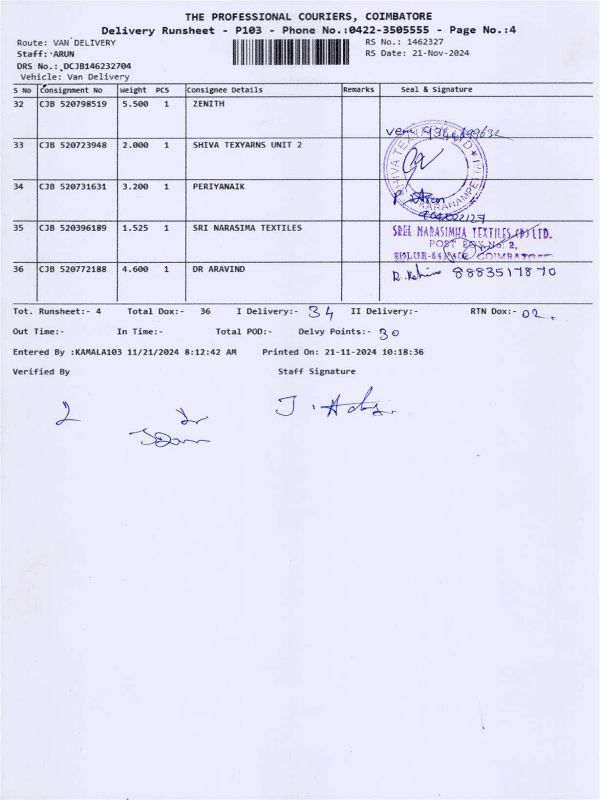 THE PROFESSIONAL COURIERS, COIMBATORE
Delivery Runsheet - P103 - Phone No.:0422-3505555 - Page No.:4
Route: VAN DELIVERY RS No.: 1462327
Staff: ARUN RS Date: 21-Nov-2024
DRS No.: DCJB146232704
Vehicle: Van Delivery
S No Consignment No Weight PCS Consignee Details Remarks Seal & Signature
32 CJB 520798519 5.500 1 ZENITH
33 CJB 520723948 2.000 1 SHIVA TEXYARNS UNIT 2
34 CJB 520731631 3.200 1 PERIYANAIK
35 CJB 520396189 1.525 1 SRI NARASIMA TEXTILES
SREE NARASIMHA TEXTILES (P) LTD.
POST BOX No 2,
36 CJB 520772188 4.600 1 DR ARAVIND
8883517870
Tot. Runsheet:- 4 Total Dox:- 36 I Delivery:- 34 II Delivery:- RTN Dox:- 02.
Out Time:- In Time:- Total POD:- Delvy Points:- 30
Entered By :KAMALA103 11/21/2024 8:12:42 AM Printed On: 21-11-2024 10:18:36
Verified By Staff Signature